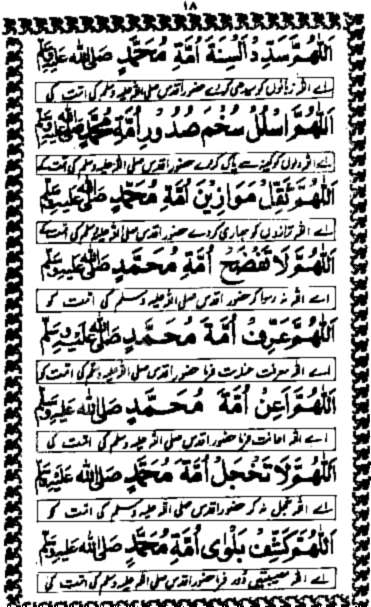 ۱۸
اَللّٰهُمَّ سَدِّدْ اَلْسِنَةَ اُمَّةِ مُحَمَّدٍ صَلَّى اللّٰهُ عَلَيْهِ وَسَلَّمَ
اے اللہ زبانوں کو سیدھی کردے حضور اقدس صلی اللہ علیہ وسلم کی امت کی
اَللّٰهُمَّ اسْلُلْ سُخْمَ صُدُورِ اُمَّةِ مُحَمَّدٍ صَلَّى اللّٰهُ عَلَيْهِ وَسَلَّمَ
اے اللہ دلوں کو کینہ سے پاک کردے حضور اقدس صلی اللہ علیہ وسلم کی امت کے
اَللّٰهُمَّ ثَقِّلْ مَوَازِيْنَ اُمَّةِ مُحَمَّدٍ صَلَّى اللّٰهُ عَلَيْهِ وَسَلَّمَ
اے اللہ ترازوں کو بھاری کردے حضور اقدس صلی اللہ علیہ وسلم کی امت کے
اَللّٰهُمَّ لَا تَفْضَحْ اُمَّةَ مُحَمَّدٍ صَلَّى اللّٰهُ عَلَيْهِ وَسَلَّمَ
اے اللہ نہ رسوا کر حضور اقدس صلی اللہ علیہ وسلم کی امت کو
اَللّٰهُمَّ عَرِّفْ اُمَّةَ مُحَمَّدٍ صَلَّى اللّٰهُ عَلَيْهِ وَسَلَّمَ
اے اللہ معرفت عنایت فرما حضور اقدس صلی اللہ علیہ وسلم کی امت کو
اَللّٰهُمَّ اَعِنْ اُمَّةَ مُحَمَّدٍ صَلَّى اللّٰهُ عَلَيْهِ وَسَلَّمَ
اے اللہ اعانت فرما حضور اقدس صلی اللہ علیہ وسلم کی امت کی
اَللّٰهُمَّ لَا تُخْجِلْ اُمَّةَ مُحَمَّدٍ صَلَّى اللّٰهُ عَلَيْهِ وَسَلَّمَ
اے اللہ خجل نہ کر حضور اقدس صلی اللہ علیہ وسلم کی امت کو
اَللّٰهُمَّ كَشِّفْ بَلْوٰى اُمَّةِ مُحَمَّدٍ صَلَّى اللّٰهُ عَلَيْهِ وَسَلَّمَ
اے اللہ مصیبتیں دور فرما حضور اقدس صلی اللہ علیہ وسلم کی امت کی